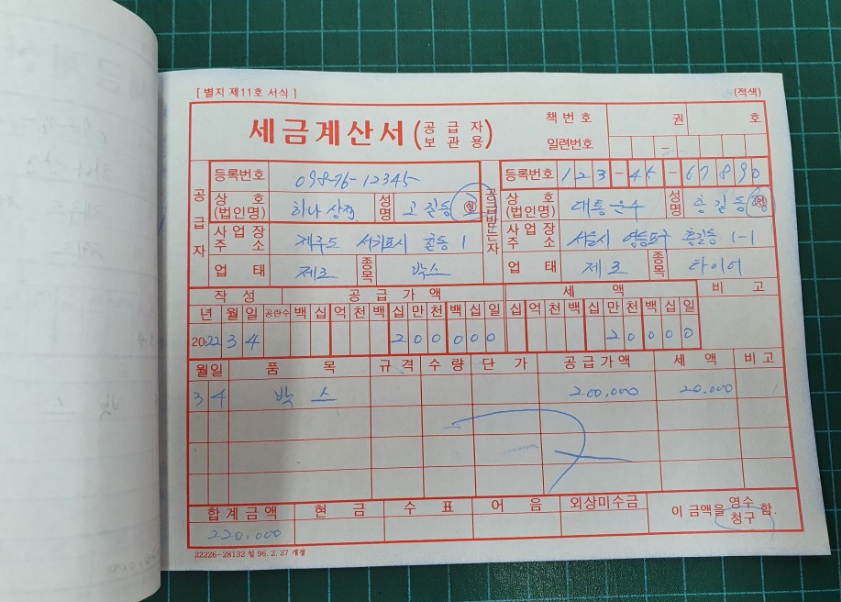 [ 별지 제11호 서식 ] (적색)
세금계산서 (공급자 보관용) 책번호 권 호
일련번호 -
공급자 등록번호 098-76-12345 공급받는자 등록번호 123-45-67890
상호 (법인명) 하나상점 성명 고길동 인 상호 (법인명) 대통운수 성명 홍길동 인
사업장 주소 제주도 서귀포시 귤동 1 사업장 주소 서울시 영등포구 홍길동 1-1
업태 제조 종목 박스 업태 제조 종목 타이어
작성 공급가액 세액 비고
년 월 일 공란수 백 십 억 천 백 십 만 천 백 십 일 십 억 천 백 십 만 천 백 십 일
2022 3 4 200000 20000
월 일 품목 규격 수량 단가 공급가액 세액 비고
3 4 박스 200,000 20,000
합계금액 현금 수표 어음 외상미수금 이 금액을 영수 청구 함.
220,000
22226-28132 일 96. 2. 27 개정